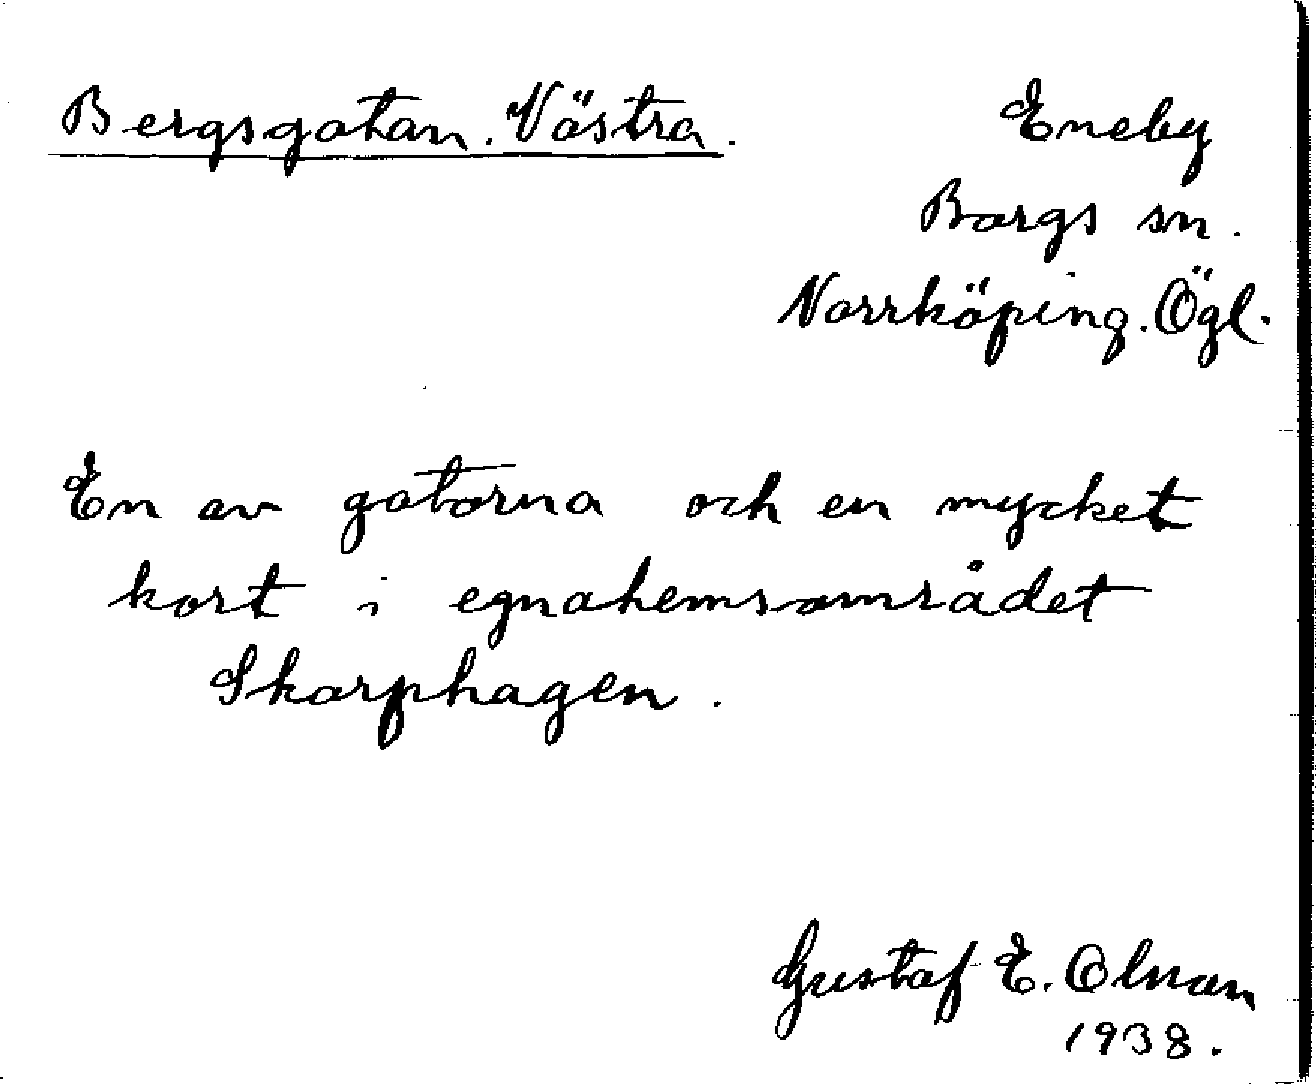 Bergsgatan. Västra.
Eneby
Borgs sn.
Norrköping. Ögl.
En av gatorna och en mycket
kort i egnahemsområdet
Skarphagen.
Gustaf E. Olman
1938.